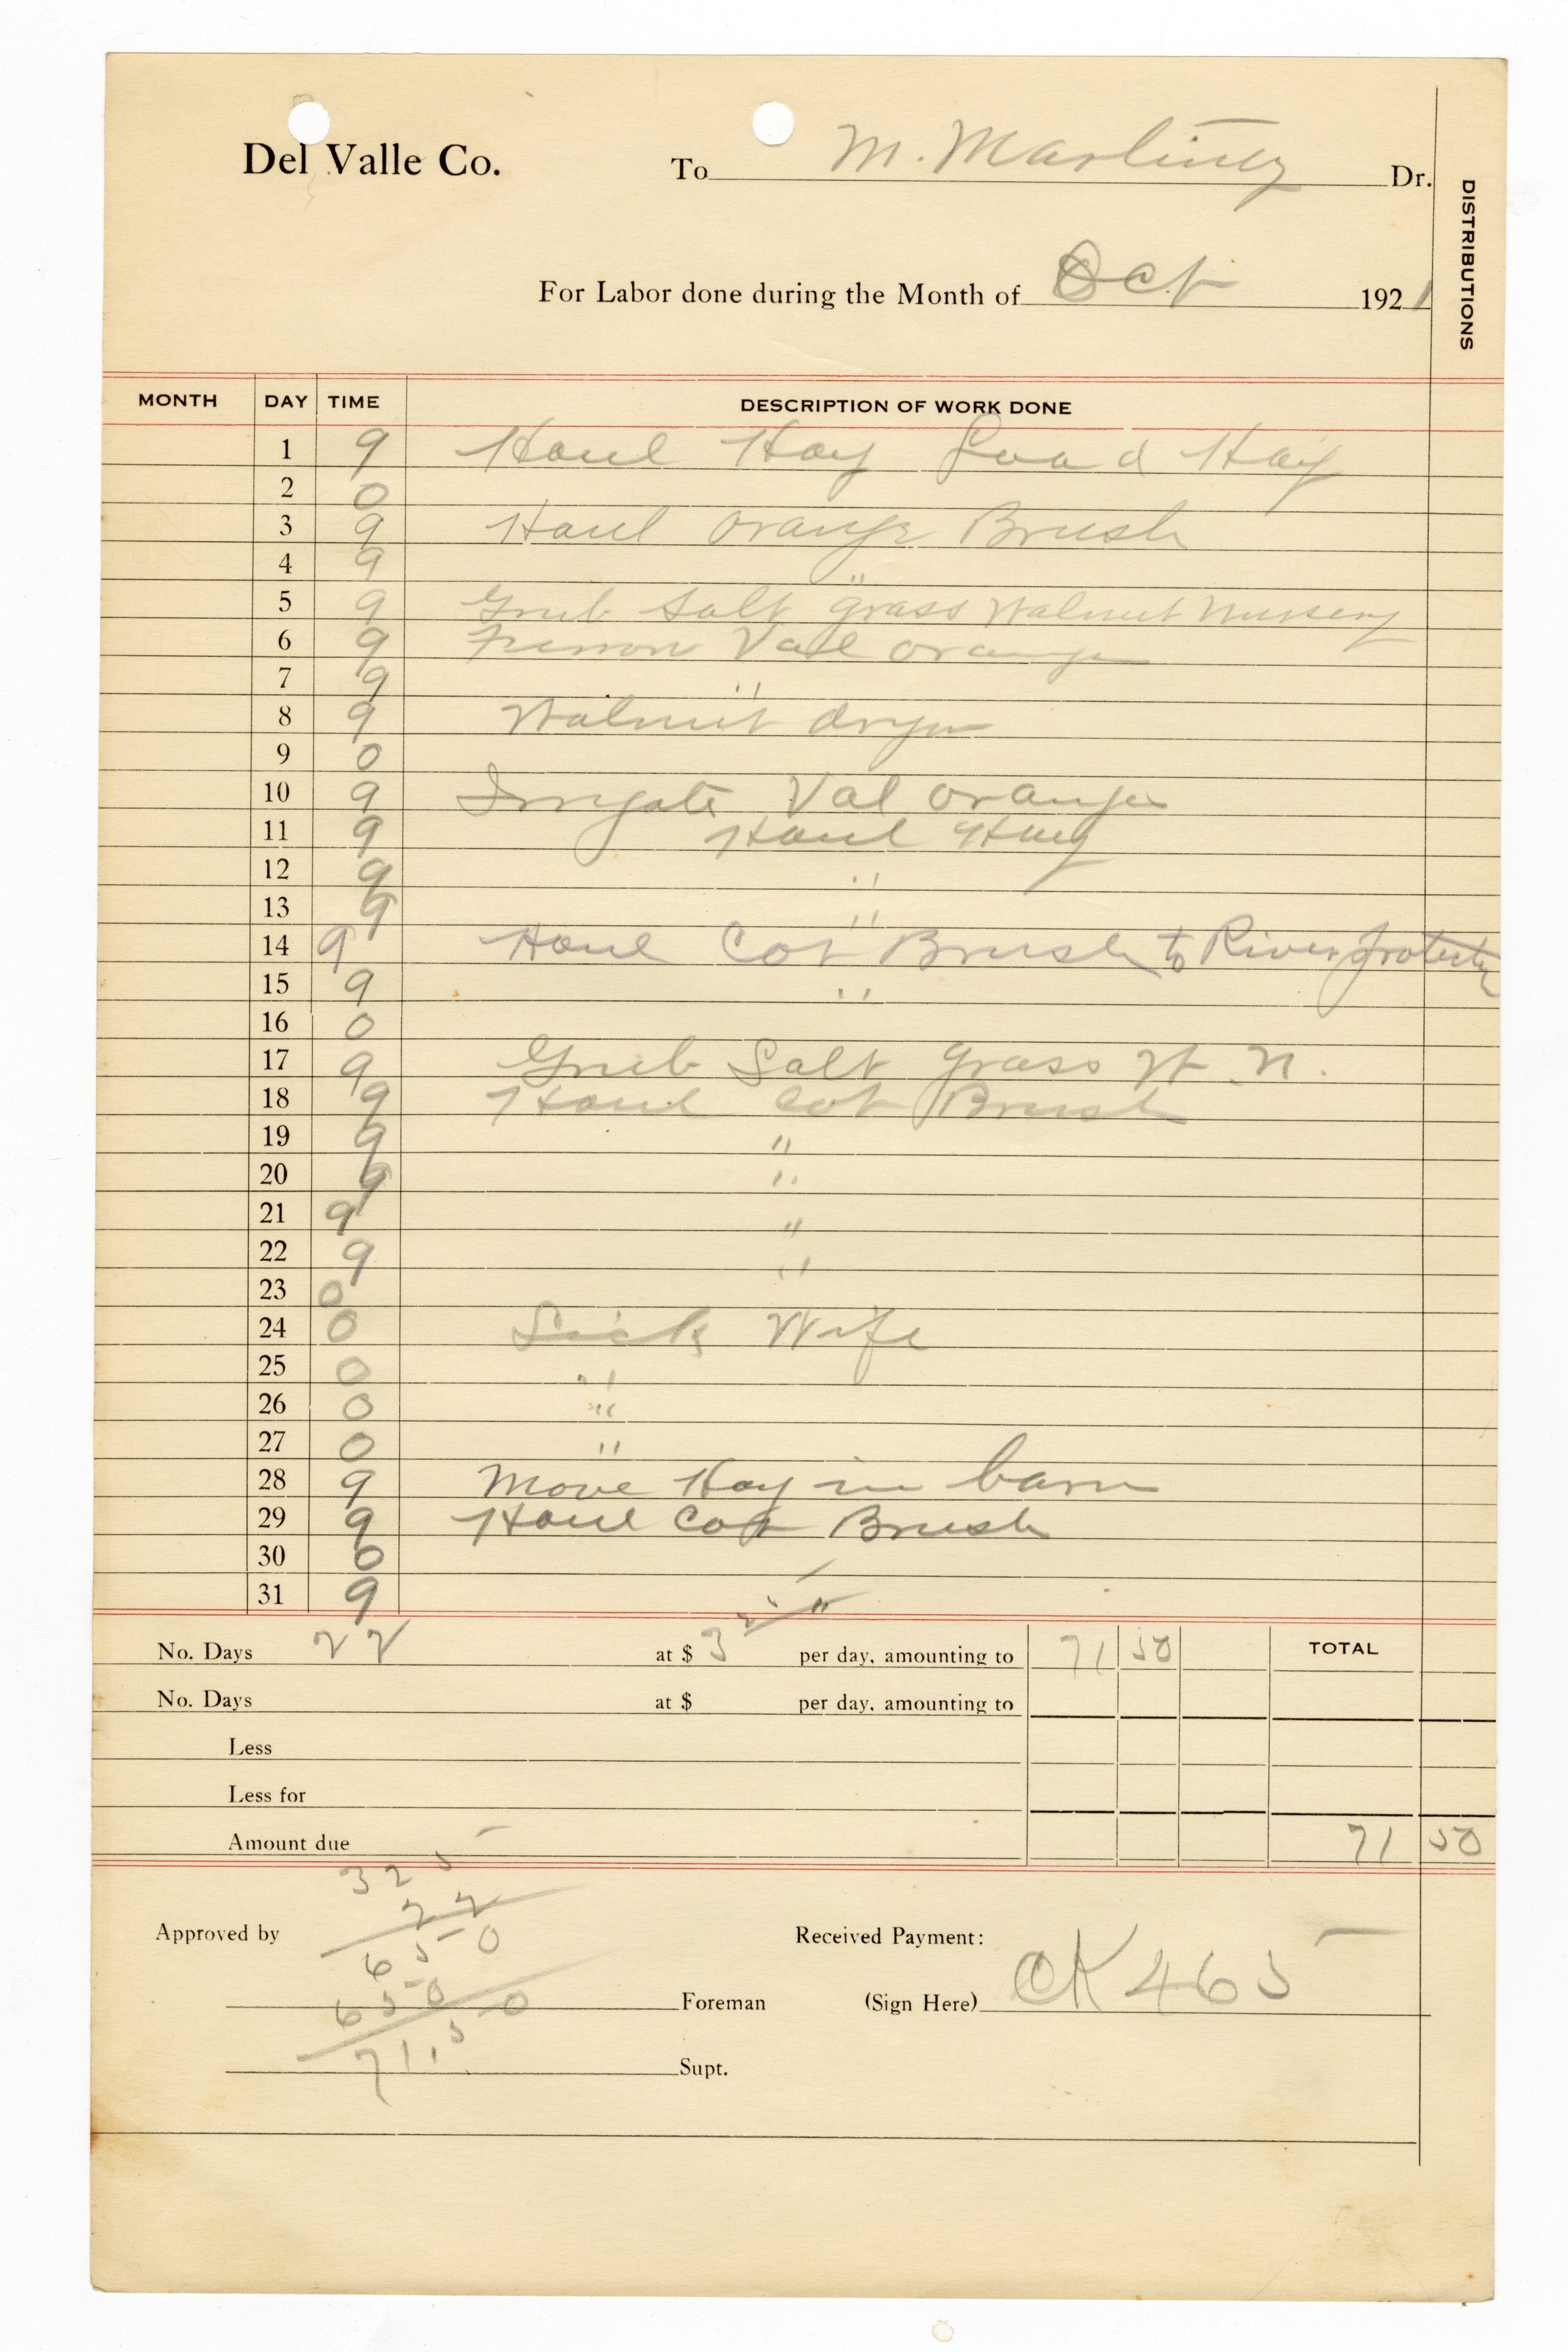 Del Valle Co. To M. Martinez Dr.
DISTRIBUTIONS
For Labor done during the Month of Oct 1921
MONTH DAY TIME DESCRIPTION OF WORK DONE
1 9 Haul Hay Load Hay
2 0
3 9 Haul orange Brush
4 9 "
5 9 Grub Salt grass Walnut Nursery
6 9 Val orange
7 9 "
8 9 Walnut dryer
9 0
10 9 Irrigate Val oranges
11 9 Haul Hay
12 9 "
13 9 "
14 9 Haul Cot Brush to River
15 9 "
16 0
17 9 Grub Salt grass W. N.
18 9 Haul Cot Brush
19 9 "
20 9 "
21 9 "
22 9 "
23 0
24 0 Sick Wife
25 0 "
26 0 "
27 0 "
28 9 Move Hay in barn
29 9 Haul Cot Brush
30 0
31 9 "
No. Days 22 at $ 3 25 per day, amounting to 71 50 TOTAL
No. Days at $ per day, amounting to
Less
Less for
Amount due 71 50
325
22
650
6500
71.50
Approved by Received Payment:
Foreman (Sign Here) CK 465
Supt.